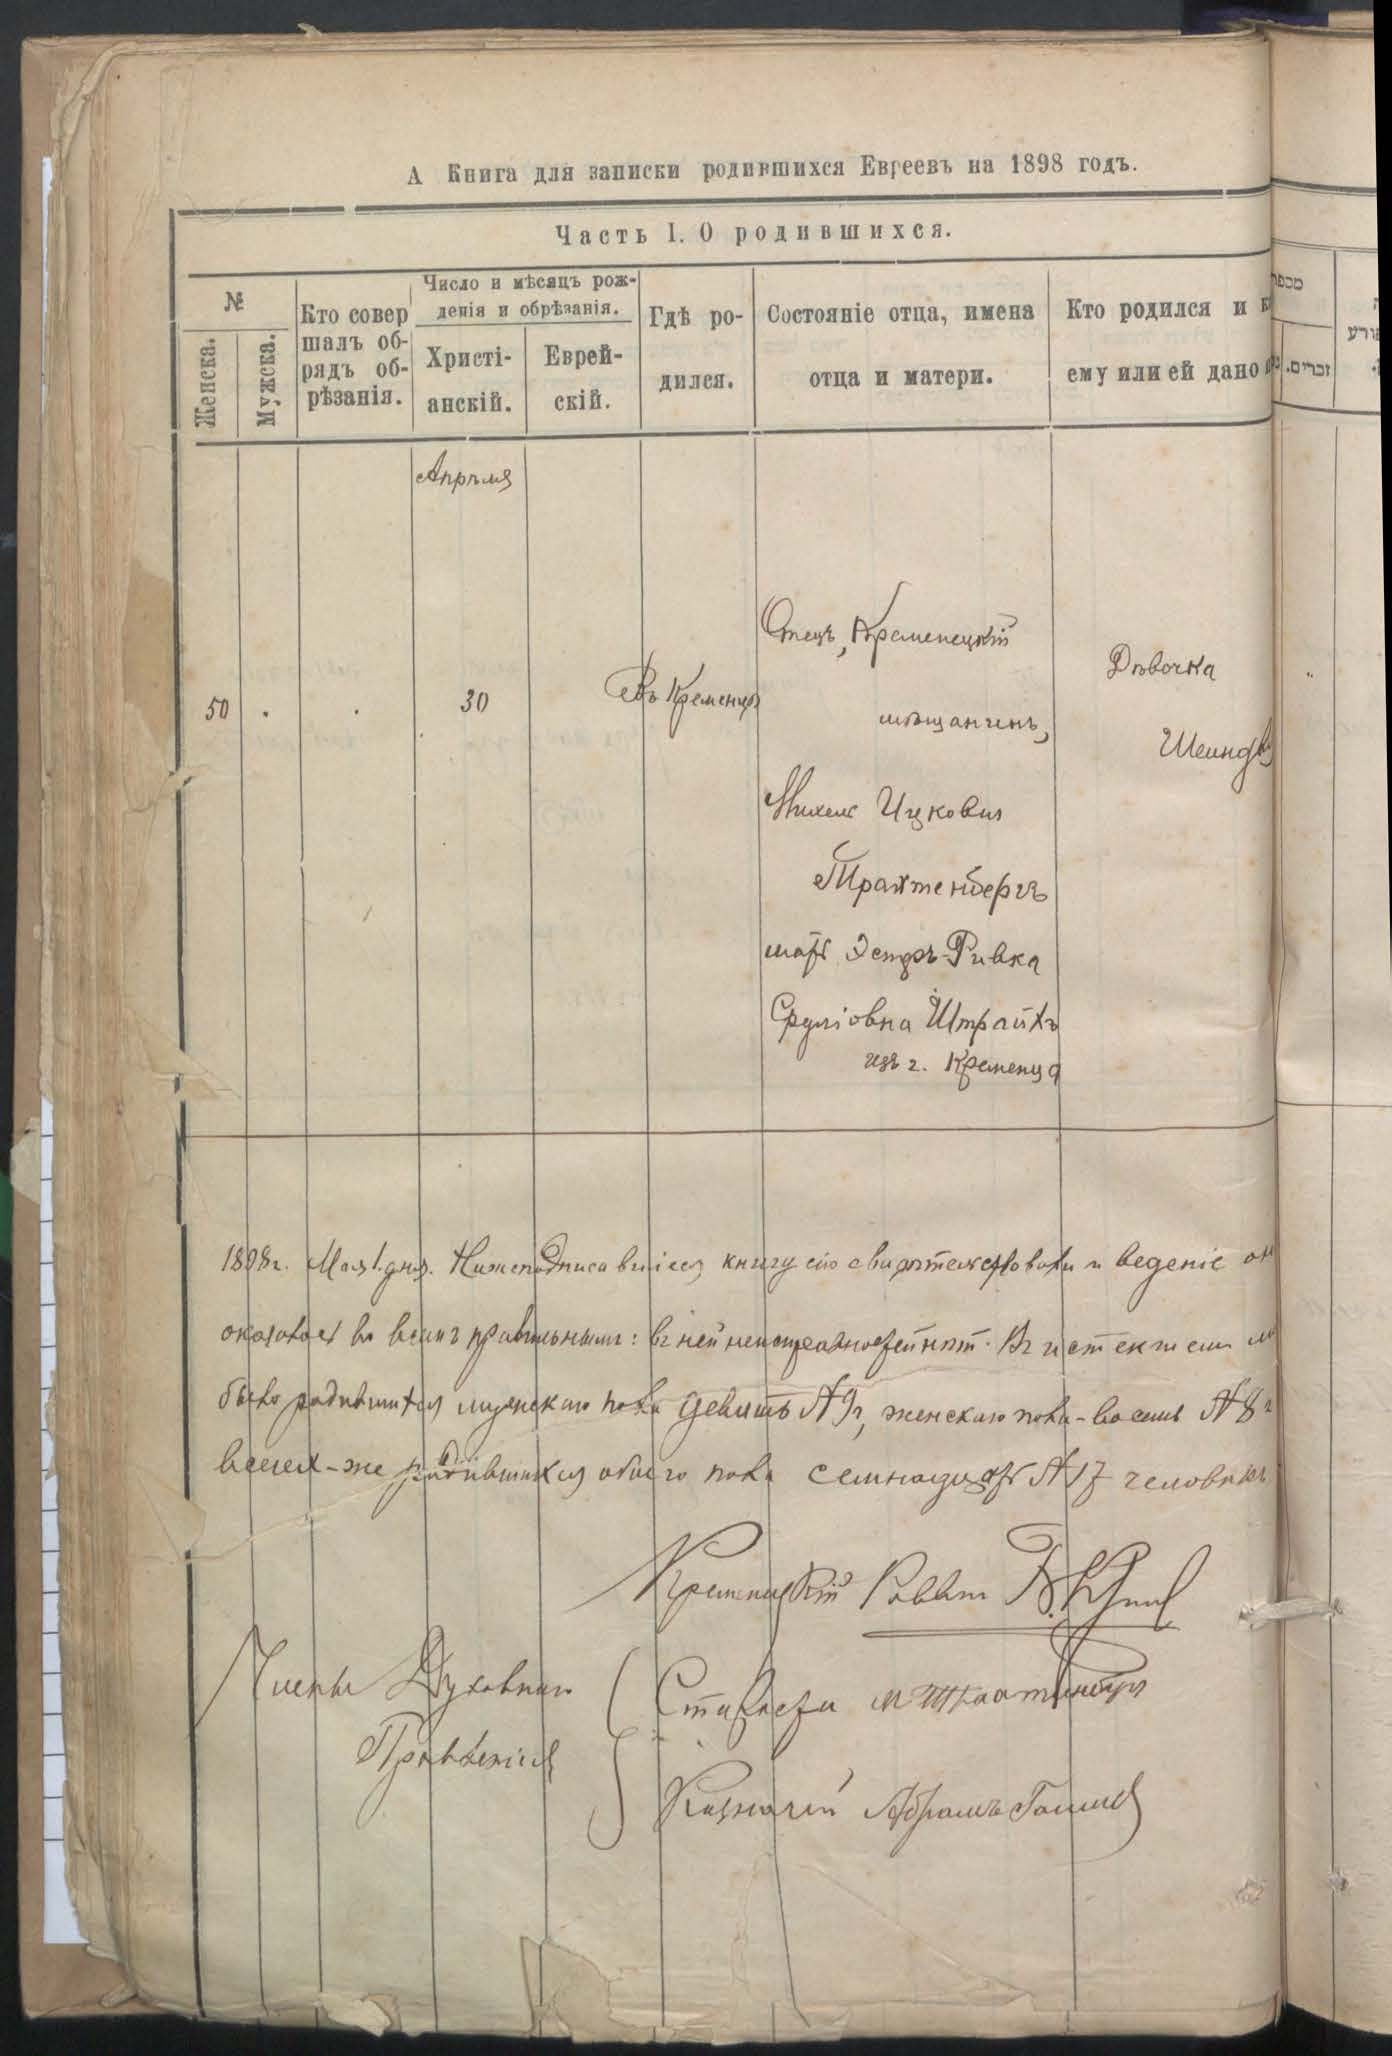 А Книга для записки родившихся Евреевъ на 1898 годъ.
Часть I. О родившихся.
№
Женска.
Мужска.
Кто совер
шалъ об-
рядъ об-
рѣзанія.
Число и мѣсяцъ рож-
денія и обрѣзанія.
Христі-
анскій.
Еврей-
скій.
Гдѣ ро-
дился.
Состояніе отца, имена
отца и матери.
Кто родился и
ему или ей дано
מספר
זכרים.
Апрѣля
50
30
Въ Кременцѣ
Отецъ, Кременецкій
мѣщанинъ,
Михель Ицковичъ
Трахтенбергъ
мать Эстръ-Ривка
Сруліовна Штрайхъ
изъ г. Кременца
Дѣвочка
Шеиндля
1898г. Мая 1. дня. Нижеподписавшіеся книгу сію свидѣтельствовали и веденіе
оказалось во всемъ правильнымъ: въ ней неисправностей нѣтъ. Въ истекшемъ
было родившихся мужскаго пола девять № 9, женскаго пола - восемь № 8
всего-же родившихся обоего пола семнадцать № 17 человѣкъ
Кременецкій Раввинъ
Члены Духовнаго
Правленія
Староста
Казначей Абрамъ